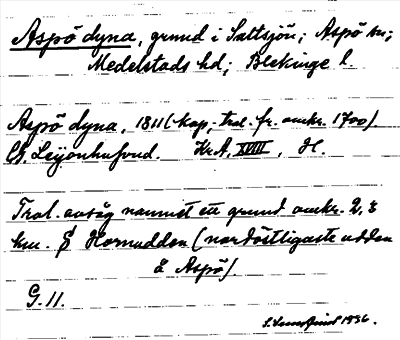 Aspö dyna, grund i Saltsjön; Aspö sn;
Medelstads hd; Blekinge l.
Aspö dyna, 1811 (kop, trol. fr. omkr. 1700)
G Leijonhufvud. KrA, XVIII, H.
Trol. avsåg namnet ett grund omkr. 2,3
km. S Hornudden (nordöstligaste udden
å Aspö).
G. 11.
1936.